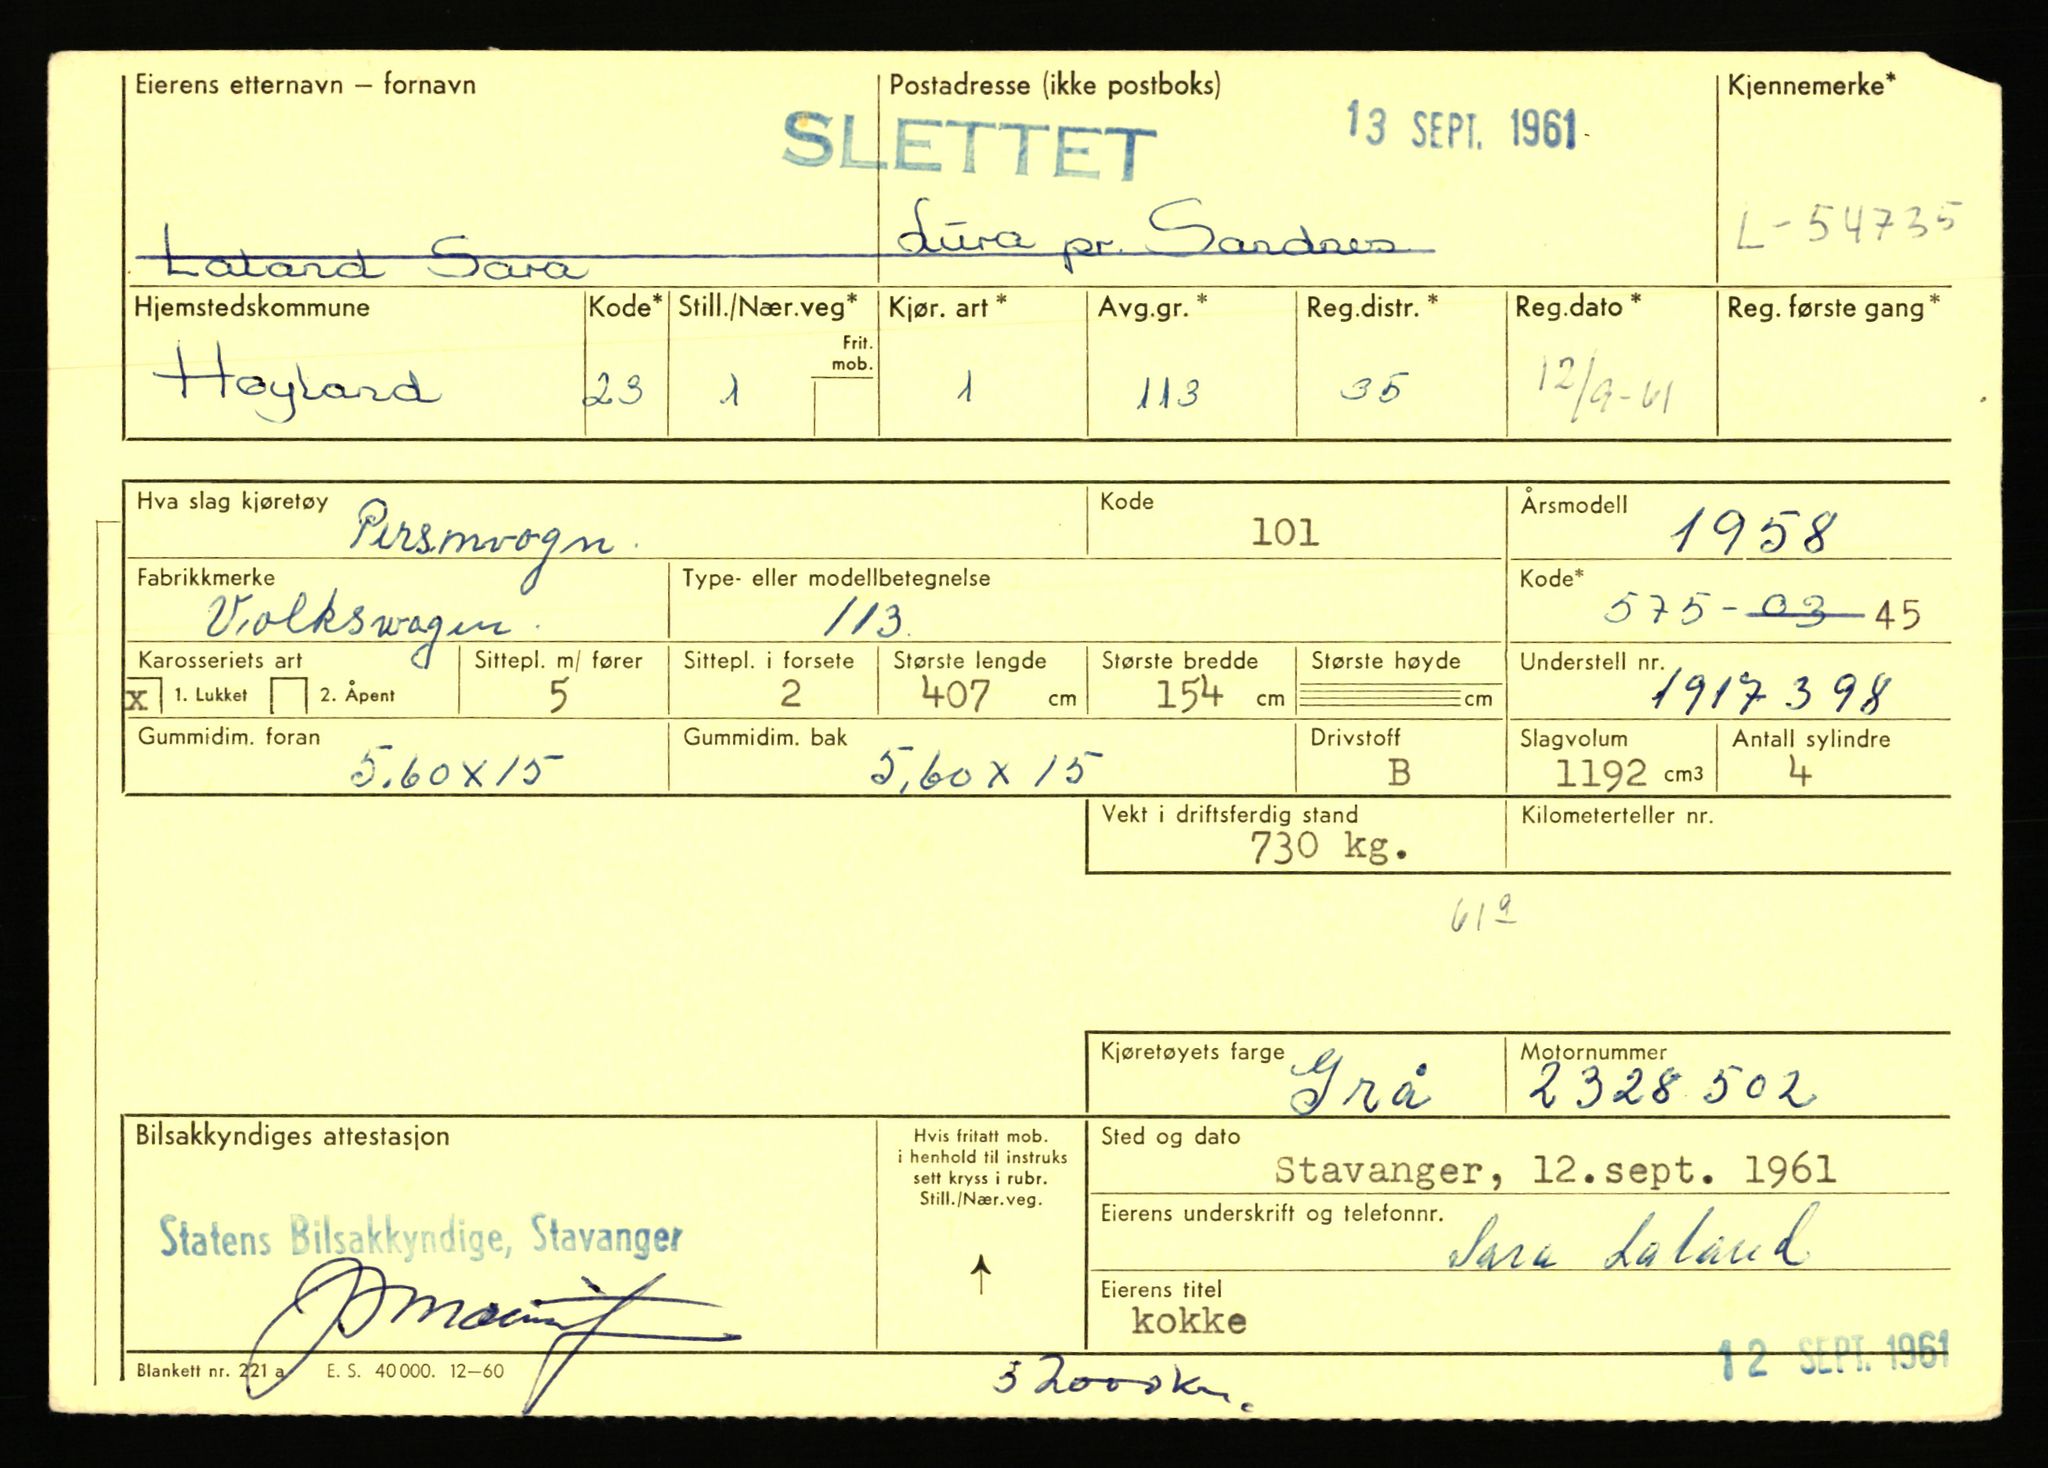 Eierens etternavn – fornavn
Postadresse (ikke postboks)
Kjennemerke*
SLETTET
13 SEPT. 1961
Laland Sara
Lura pr. Sandnes
L-54735
Hjemstedskommune
Kode*
Still./Nær.veg*
Frit. mob.
Kjør. art*
Avg.gr.*
Reg.distr.*
Reg.dato*
Reg. første gang*
Høyland
23
1
1
113
35
12/9-61
Hva slag kjøretøy
Personvogn.
Kode
101
Årsmodell
1958
Fabrikkmerke
Volkswagen.
Type- eller modellbetegnelse
113.
Kode*
575-03 45
Karosseriets art
x 1. Lukket 2. Åpent
Sittepl. m/ fører
5
Sittepl. i forsete
2
Største lengde
407 cm
Største bredde
154 cm
Største høyde
cm
Understell nr.
1917 398
Gummidim. foran
5.60x15
Gummidim. bak
5,60x15
Drivstoff
B
Slagvolum
1192 cm3
Antall sylindre
4
Vekt i driftsferdig stand
730 kg.
Kilometerteller nr.
61 9
Kjøretøyets farge
Grå
Motornummer
2328 502
Bilsakkyndiges attestasjon
Hvis fritatt mob.
i henhold til instruks
sett kryss i rubr.
Still./Nær.veg.
Sted og dato
Stavanger, 12.sept. 1961
Statens Bilsakkyndige, Stavanger
Eierens underskrift og telefonnr.
Sara Laland
Eierens titel
kokke
12 SEPT. 1961
Blankett nr. 221 a E. S. 40 000. 12–60
32000km.